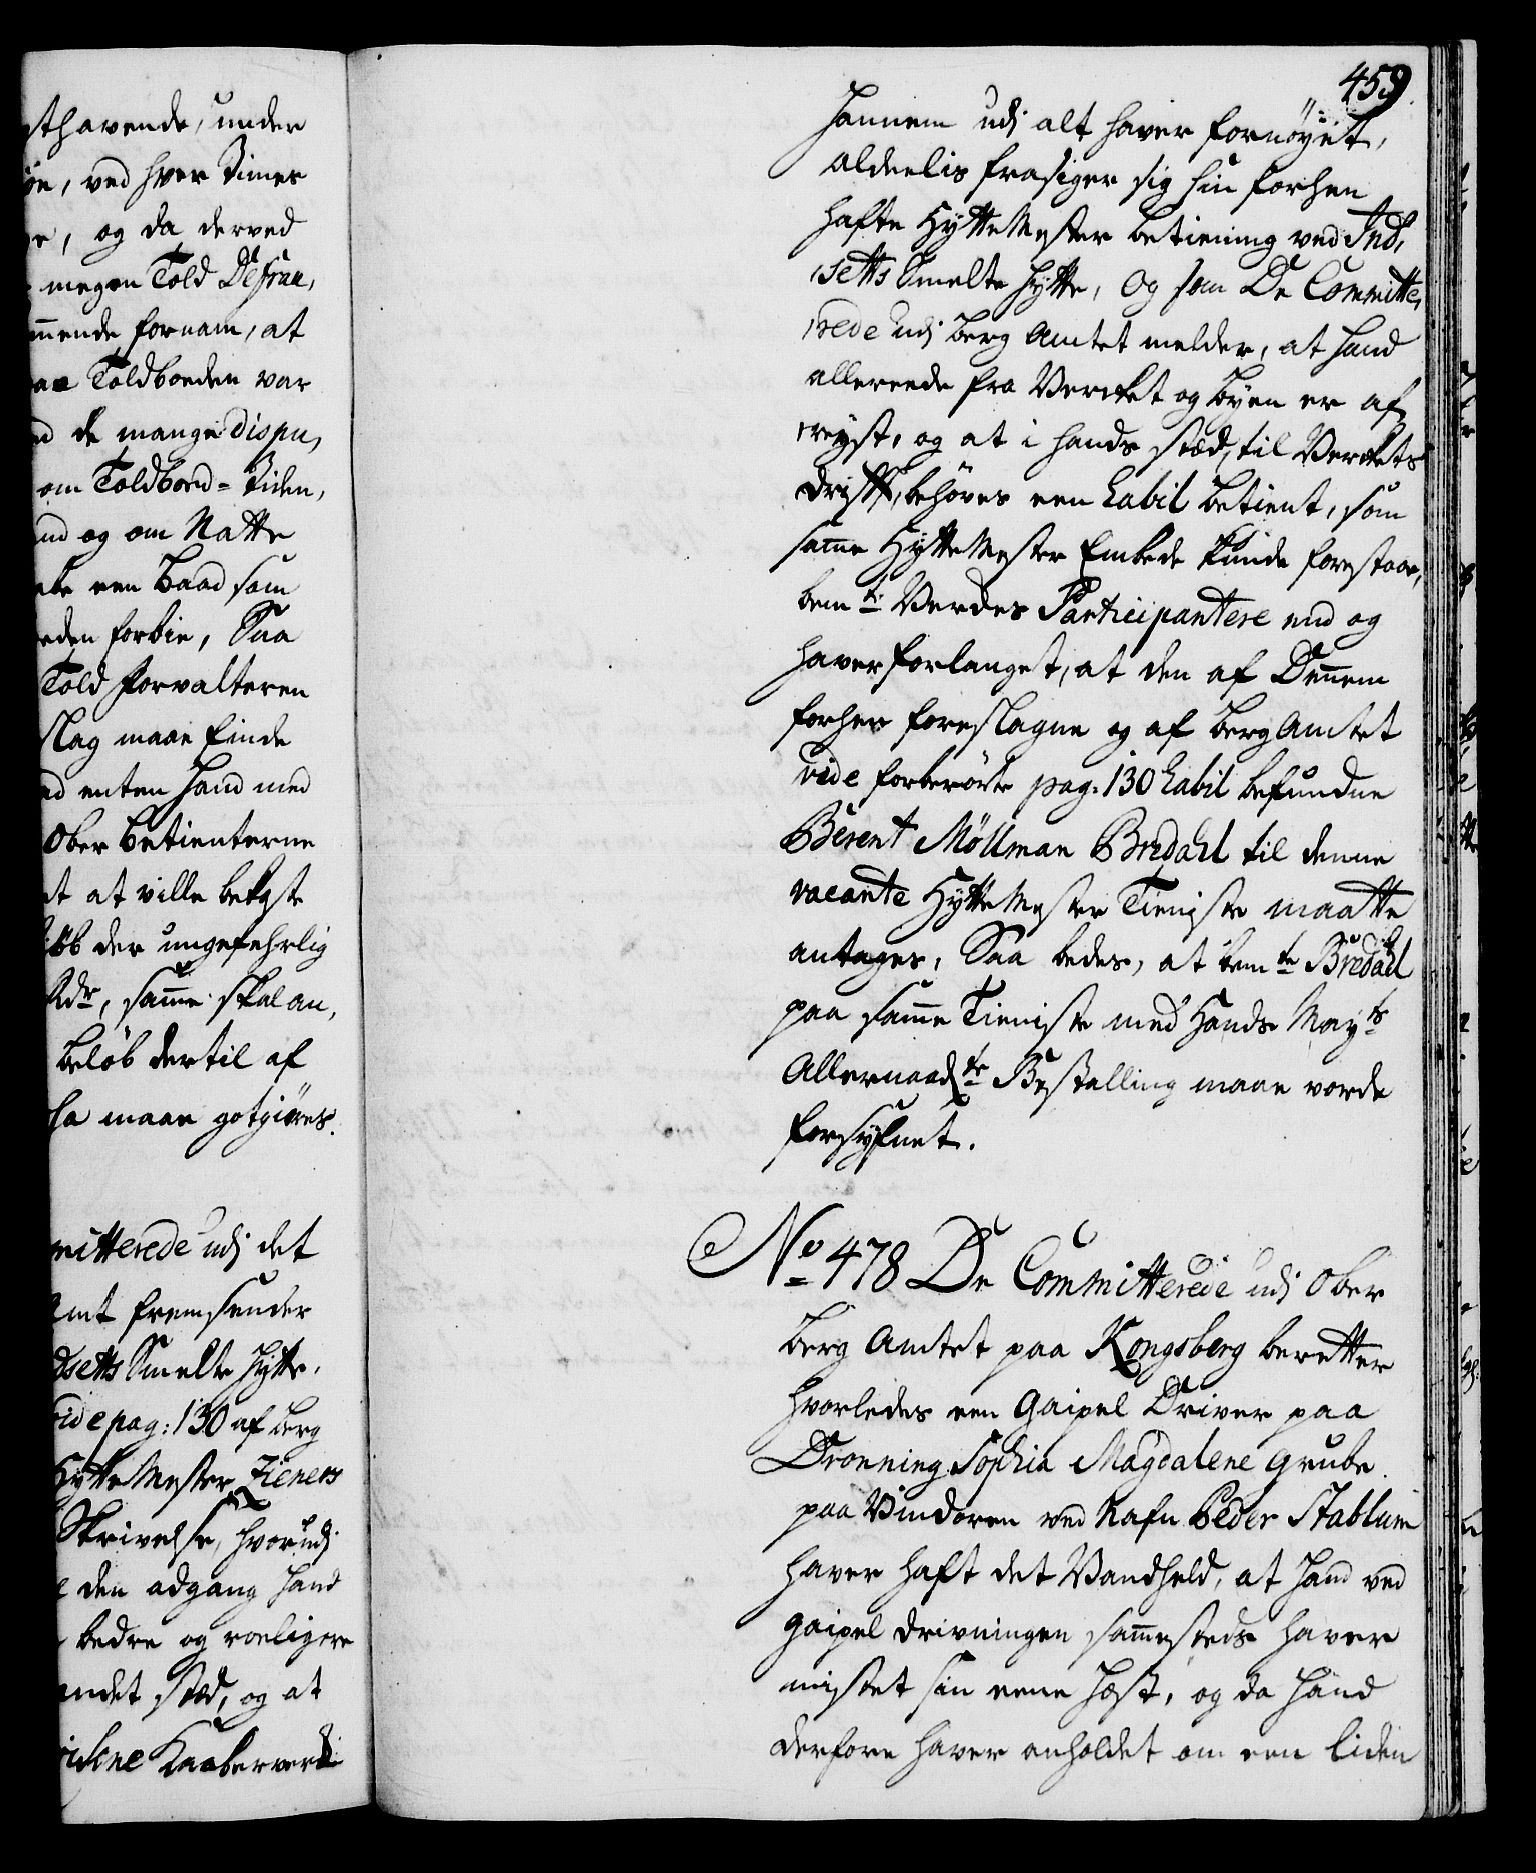 sthavende, under
øe, ved hver Times
e, og da derved
megen Told Defrau,
mende fornam, at
paa Toldboeden var
ed de mange dispu,
om Toldboed=Tiden,
nd og om Natte
een Baad som
eden forbie, Saa
Told forvalteren
slag maae finde
ed enten hand med
Ober betienterne
et at ville bekoste
løb der ungefehrlig
Rdr, samme skal an,
beløb dertil af
ha maae gotgiøres.
mitterede udj det
Amt fremsender
dsetts Smelte hytte,
vide pag: 130 af berg
Hytte Mester Zieners
Skrivelse, hvorudj
den adgang hand
bedre og roeligere
andet stæd, og at
Kaaberverk
459
hannem udj alt haver fornöyet,
aldeelis frasiger sig sin forhen
hafte Hytte Mester betiening ved Ind,
setts Smelte hytte, og som De Committe,
rede udj berg Amtet melder, at hand
allereede fra Verket og byen er af,
reyst, og at i hands stæd, til Verkets
drift, behöves een habil betient, som
samme Hytte Mester Embede kunde forestaae,
bemte Verckes Participantere end og
haver forlanget, at den af Dennem
forhen foreslagne og af berg Amtet
vide forberörte pag: 130 habil befundne
Berent Möllman Bredahl til denne
vacante Hytte Mester Tieniste maatte
antages, Saa bedes, at bemte Bredahl
paa samme Tieniste med Hands Mayts
Allernaadste Bestalling maae vorde
forsyfnet.
No 478 De Committerede udj Ober
berg Amtet paa Kongsberg beretter
hvorledes een Gaipel Driver paa
Dronning Sophia Magdalene grube
paa Vindoren ved Nafn Peder Stablum
haver haft det Vandheld, at hand ved
gaipel drivningen sammesteds haver
mistet sin eene hest, og da hand
derfore haver anholdet om een liden